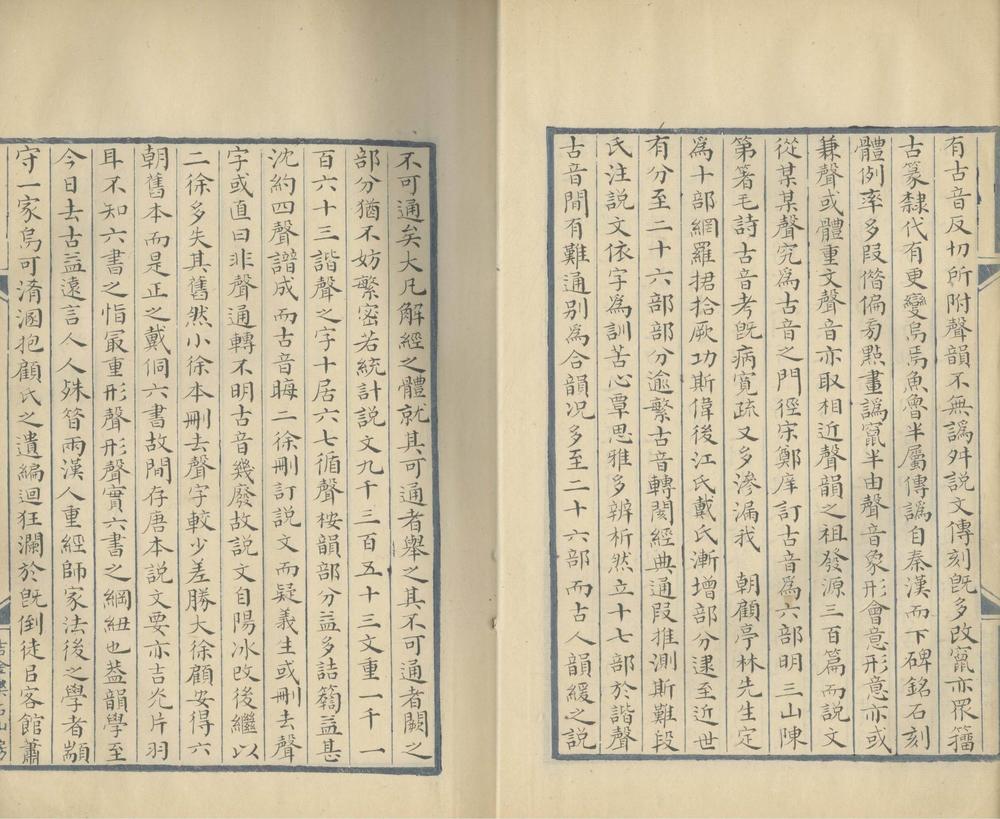 有古音反切所附聲韻不無譌舛説文傳刻旣多改竄亦罕籀
古篆隸代有更變烏焉魚魯半屬傳譌自秦漢而下碑銘石刻
體例率多叚偺偏旁㸃畫譌竄半由聲音象形會意形意亦或
兼聲或體重文聲音亦取相近聲韻之祖發源三百篇而説文
從某某聲究爲古音之門徑宋鄭庠訂古音爲六部明三山陳
第箸毛詩古音考旣病寬疏又多滲漏我 朝顧亭林先生定
爲十部網羅捃拾厥功斯偉後江氏戴氏漸增部分逮至近世
有分至二十六部部分逾繁古音轉閡經典通叚推測斯難段
氏注説文依字爲訓苦心覃思雅多辨析然立十七部於諧聲
古音閒有難通别爲合韻况多至二十六部而古人韻緩之説
不可通矣大凡解經之體就其可通者舉之其不可通者闕之
部分猶不妨繁密若統計説文九千三百五十三文重一千一
百六十三諧聲之字十居六七循聲桉韻部分益多詰籀益甚
沈約四聲譜成而古音晦二徐刪訂説文而疑義生或刪去聲
字或直曰非聲通轉不明古音幾廢故説文自陽冰改後繼以
二徐多失其舊然小徐本刪去聲字較少差勝大徐顧安得六
朝舊本而是正之戴侗六書故閒存唐本説文要亦吉光片羽
耳不知六書之恉最重形聲形聲實六書之綱紐也葢韻學至
今日去古益遠言人人殊簮兩漢人重經師家法後之學者顓
守一家烏可淆溷抱顧氏之遺編迴狂瀾於旣倒徒㠯客館蕭